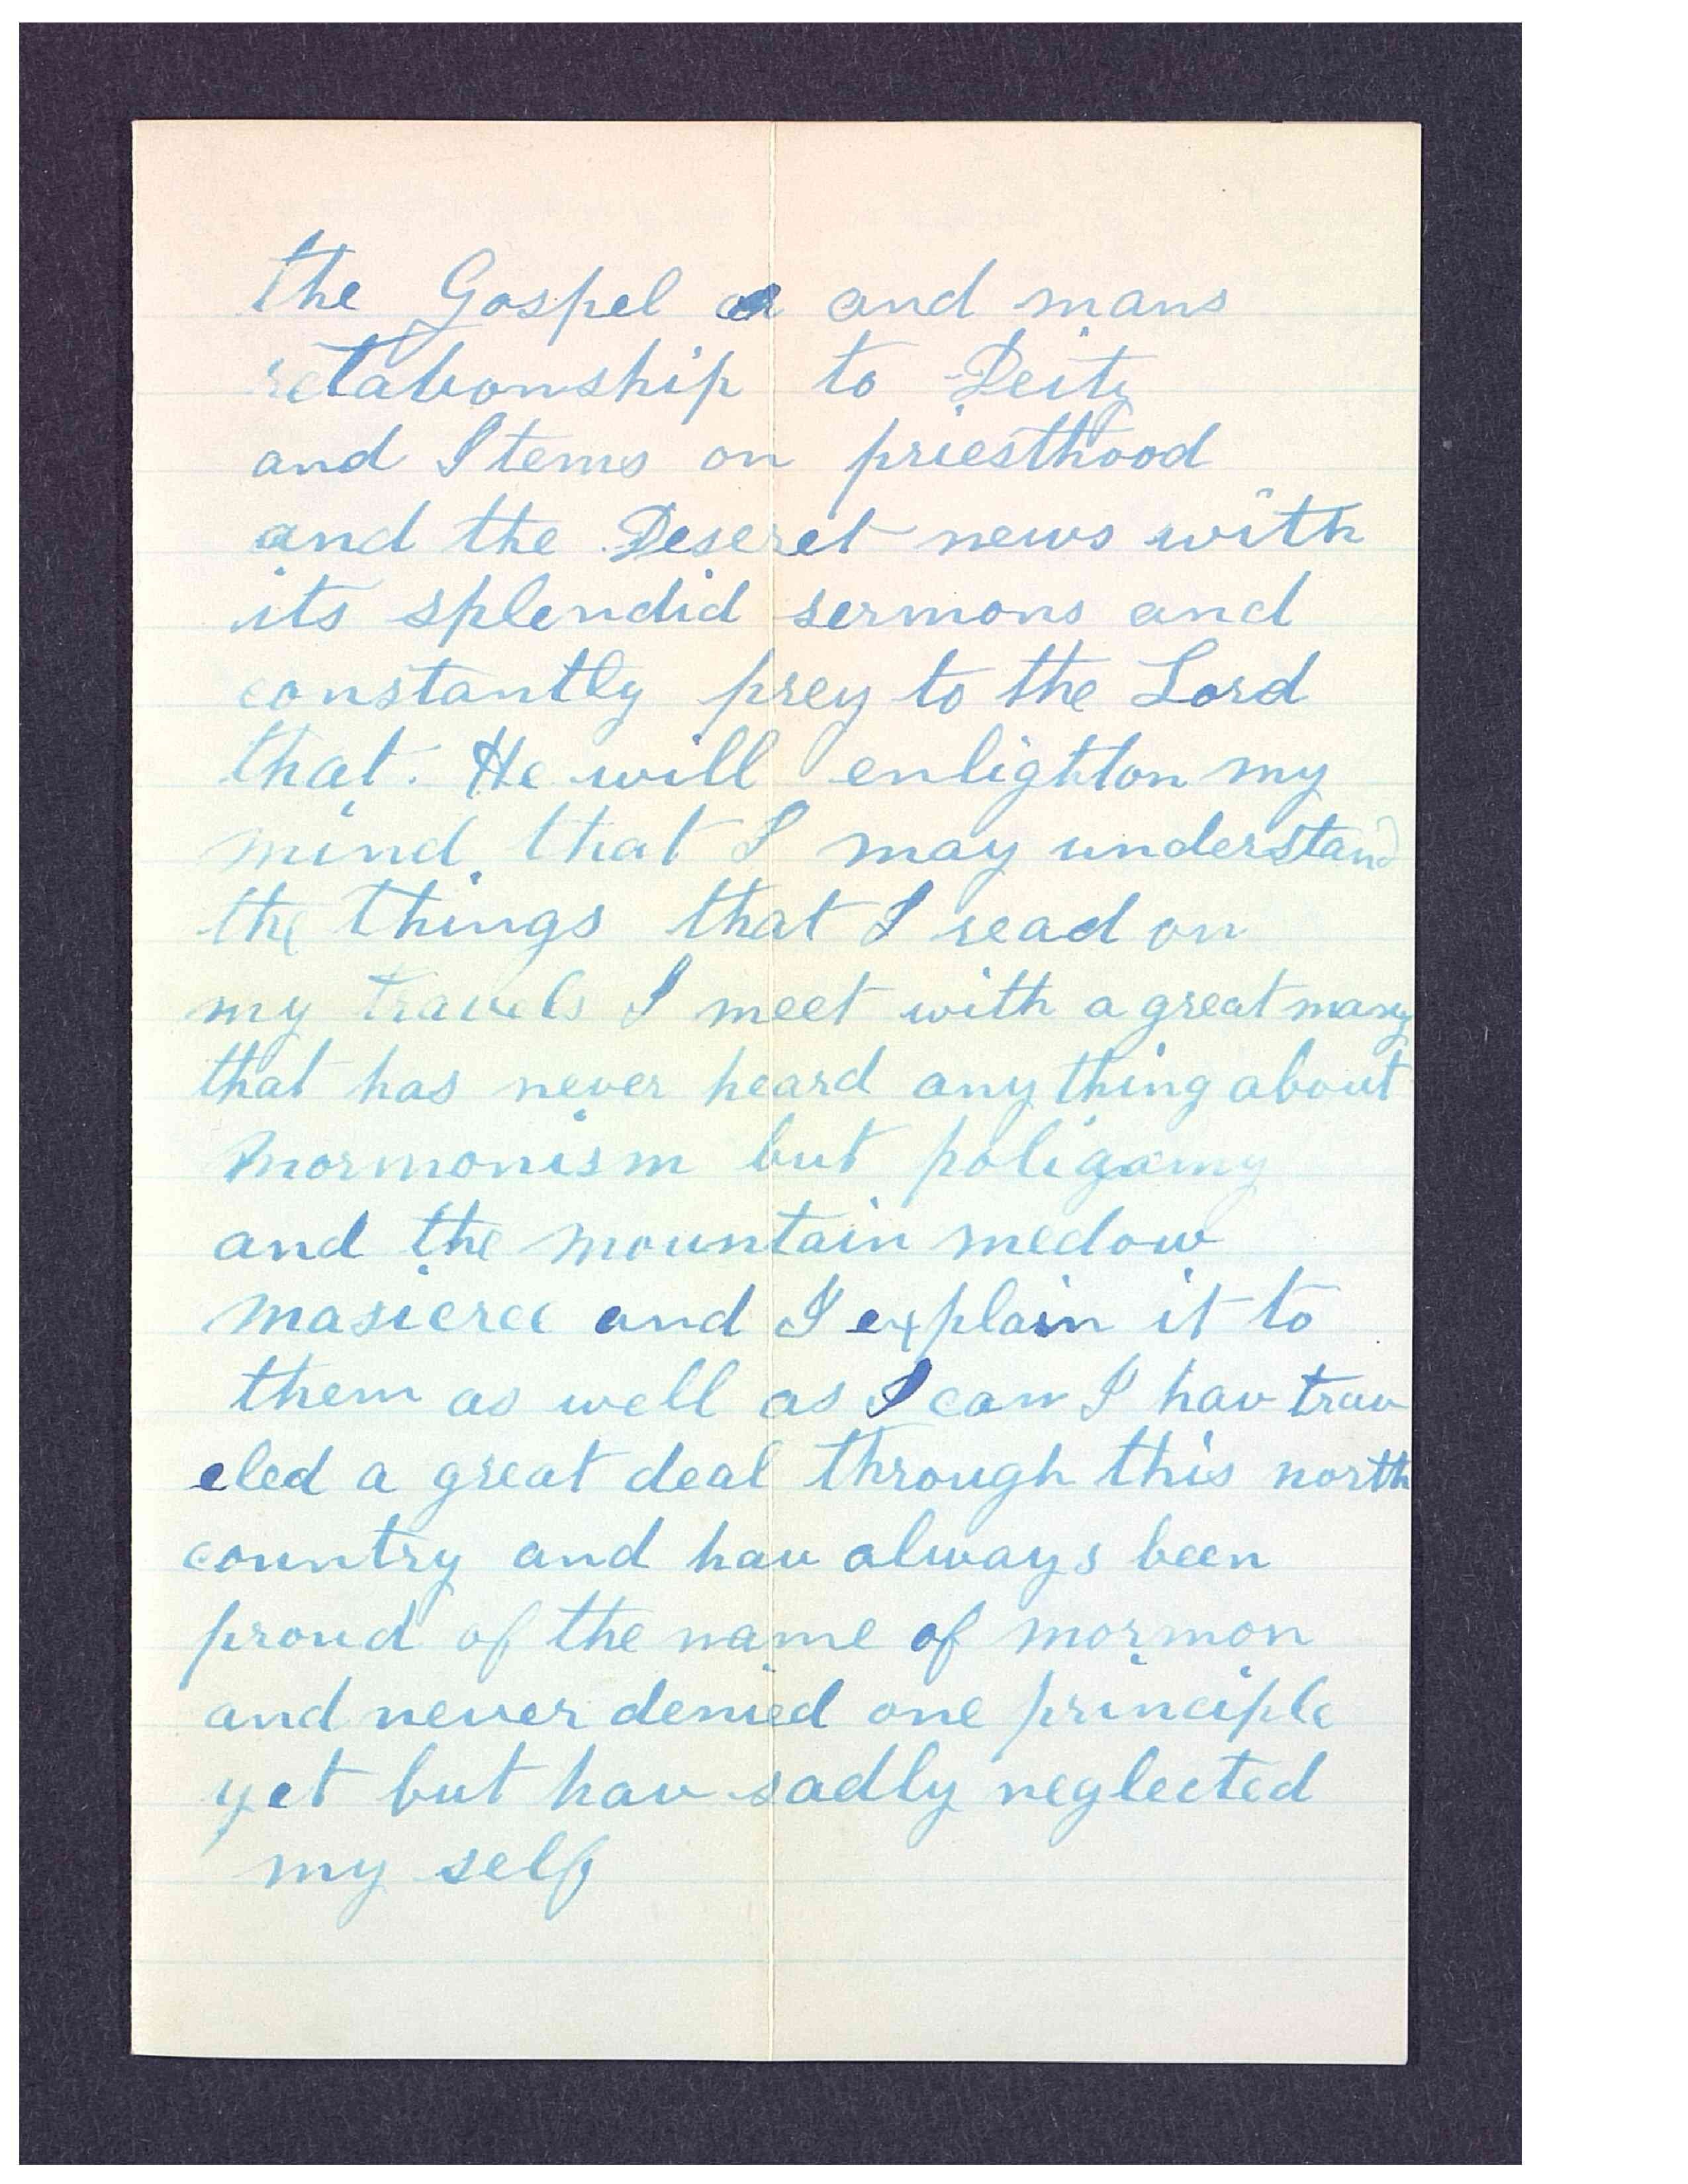 the Gospel a and mans
relationship to Deity
and Items on priesthood
and the Deseret news with
its splendid sermons and
constantly prey to the Lord
that. He will enlighton my
mind that I may understand
the things that I read on
my travels I meet with a great many
that has never heard any thing about
mormonism but poligamy
and the mountain medow
masicree and I explain it to
them as well as I can I hav trav
eled a great deal through this north
country and hav always been
proud of the name of mormon
and never denied one principle
yet but hav sadly neglected
my self